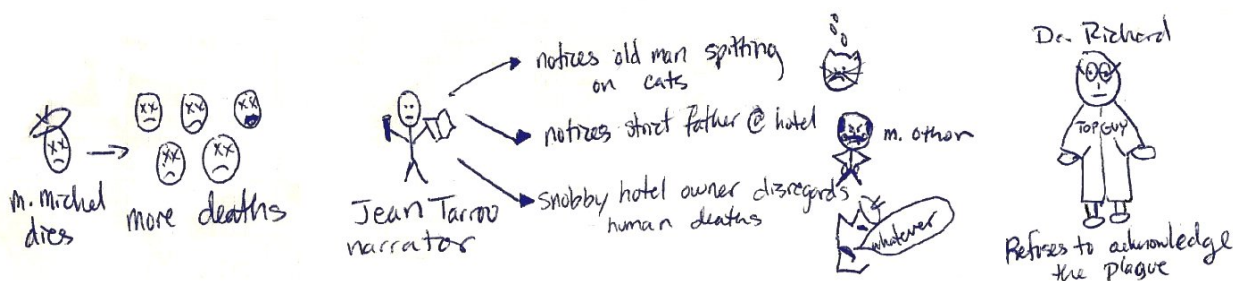 m. michel
dies
more deaths
Jean Tarrou
narrator
notices old man spitting
on cats
notices strict father @ hotel
m. othon
snobby hotel owner disregards
human deaths
whatever
Dr. Richard
TOP GUY
Refuses to acknowledge
the plague